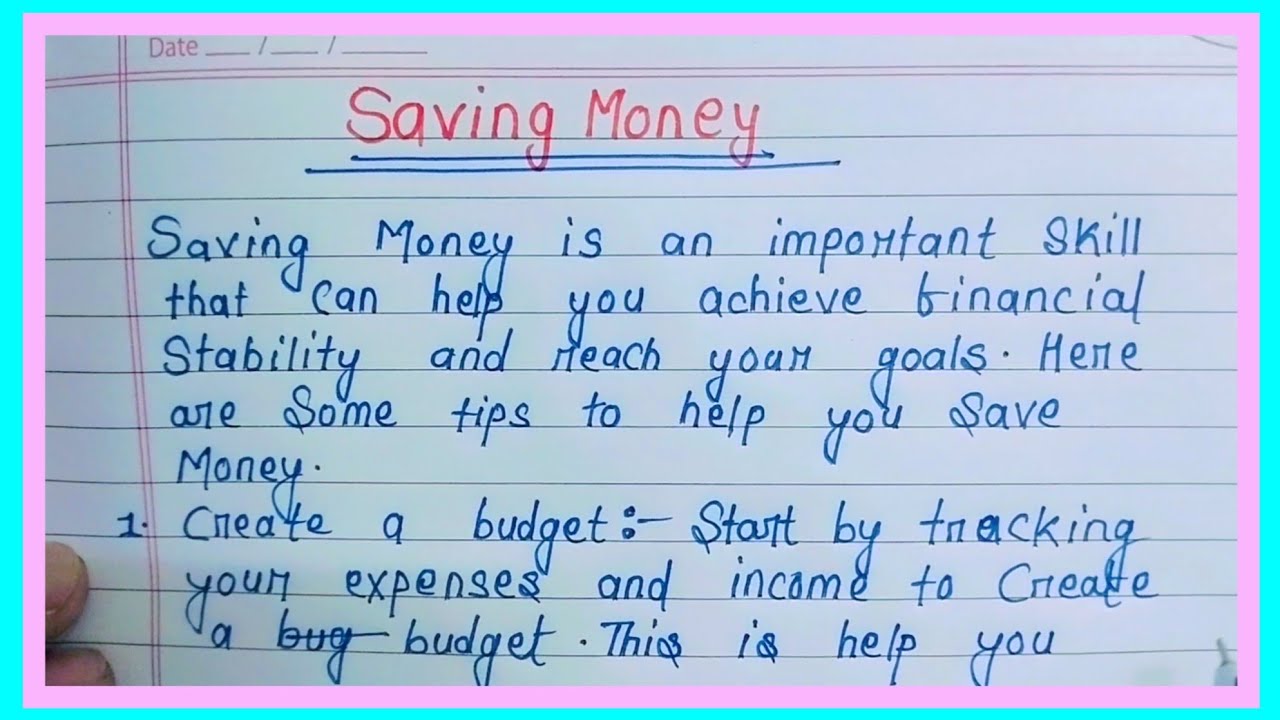 Date ___ / ___ / _____
Saving Money
Saving Money is an important Skill
that Can help you achieve financial
Stability and reach your goals. Here
are Some tips to help you Save
Money.
1. Create a budget:- Start by tracking
your expenses and income to Create
a bug budget. This is help you